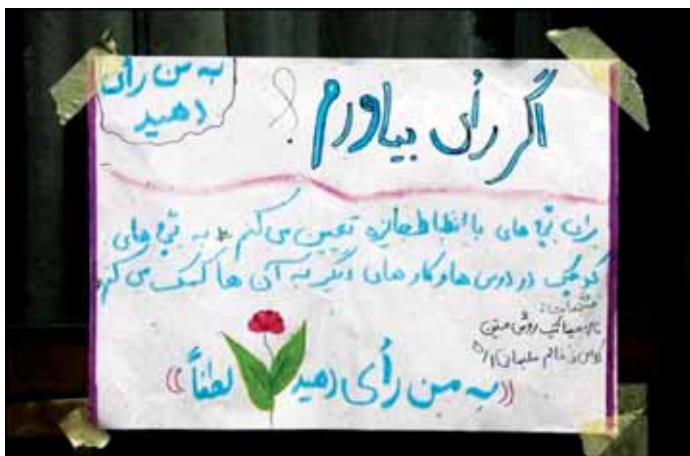 به من رأی
دهید
اگر رأی بیاورم
برای بچه های با انظباط جایزه تعیین می کنم به بچه های
کوچک در درس ها و کار های دیگر به آن ها کمک می کنم
مشخصات:
روشن
کلاس خانم سلیمان
((به من رأی دهید لطفاً))